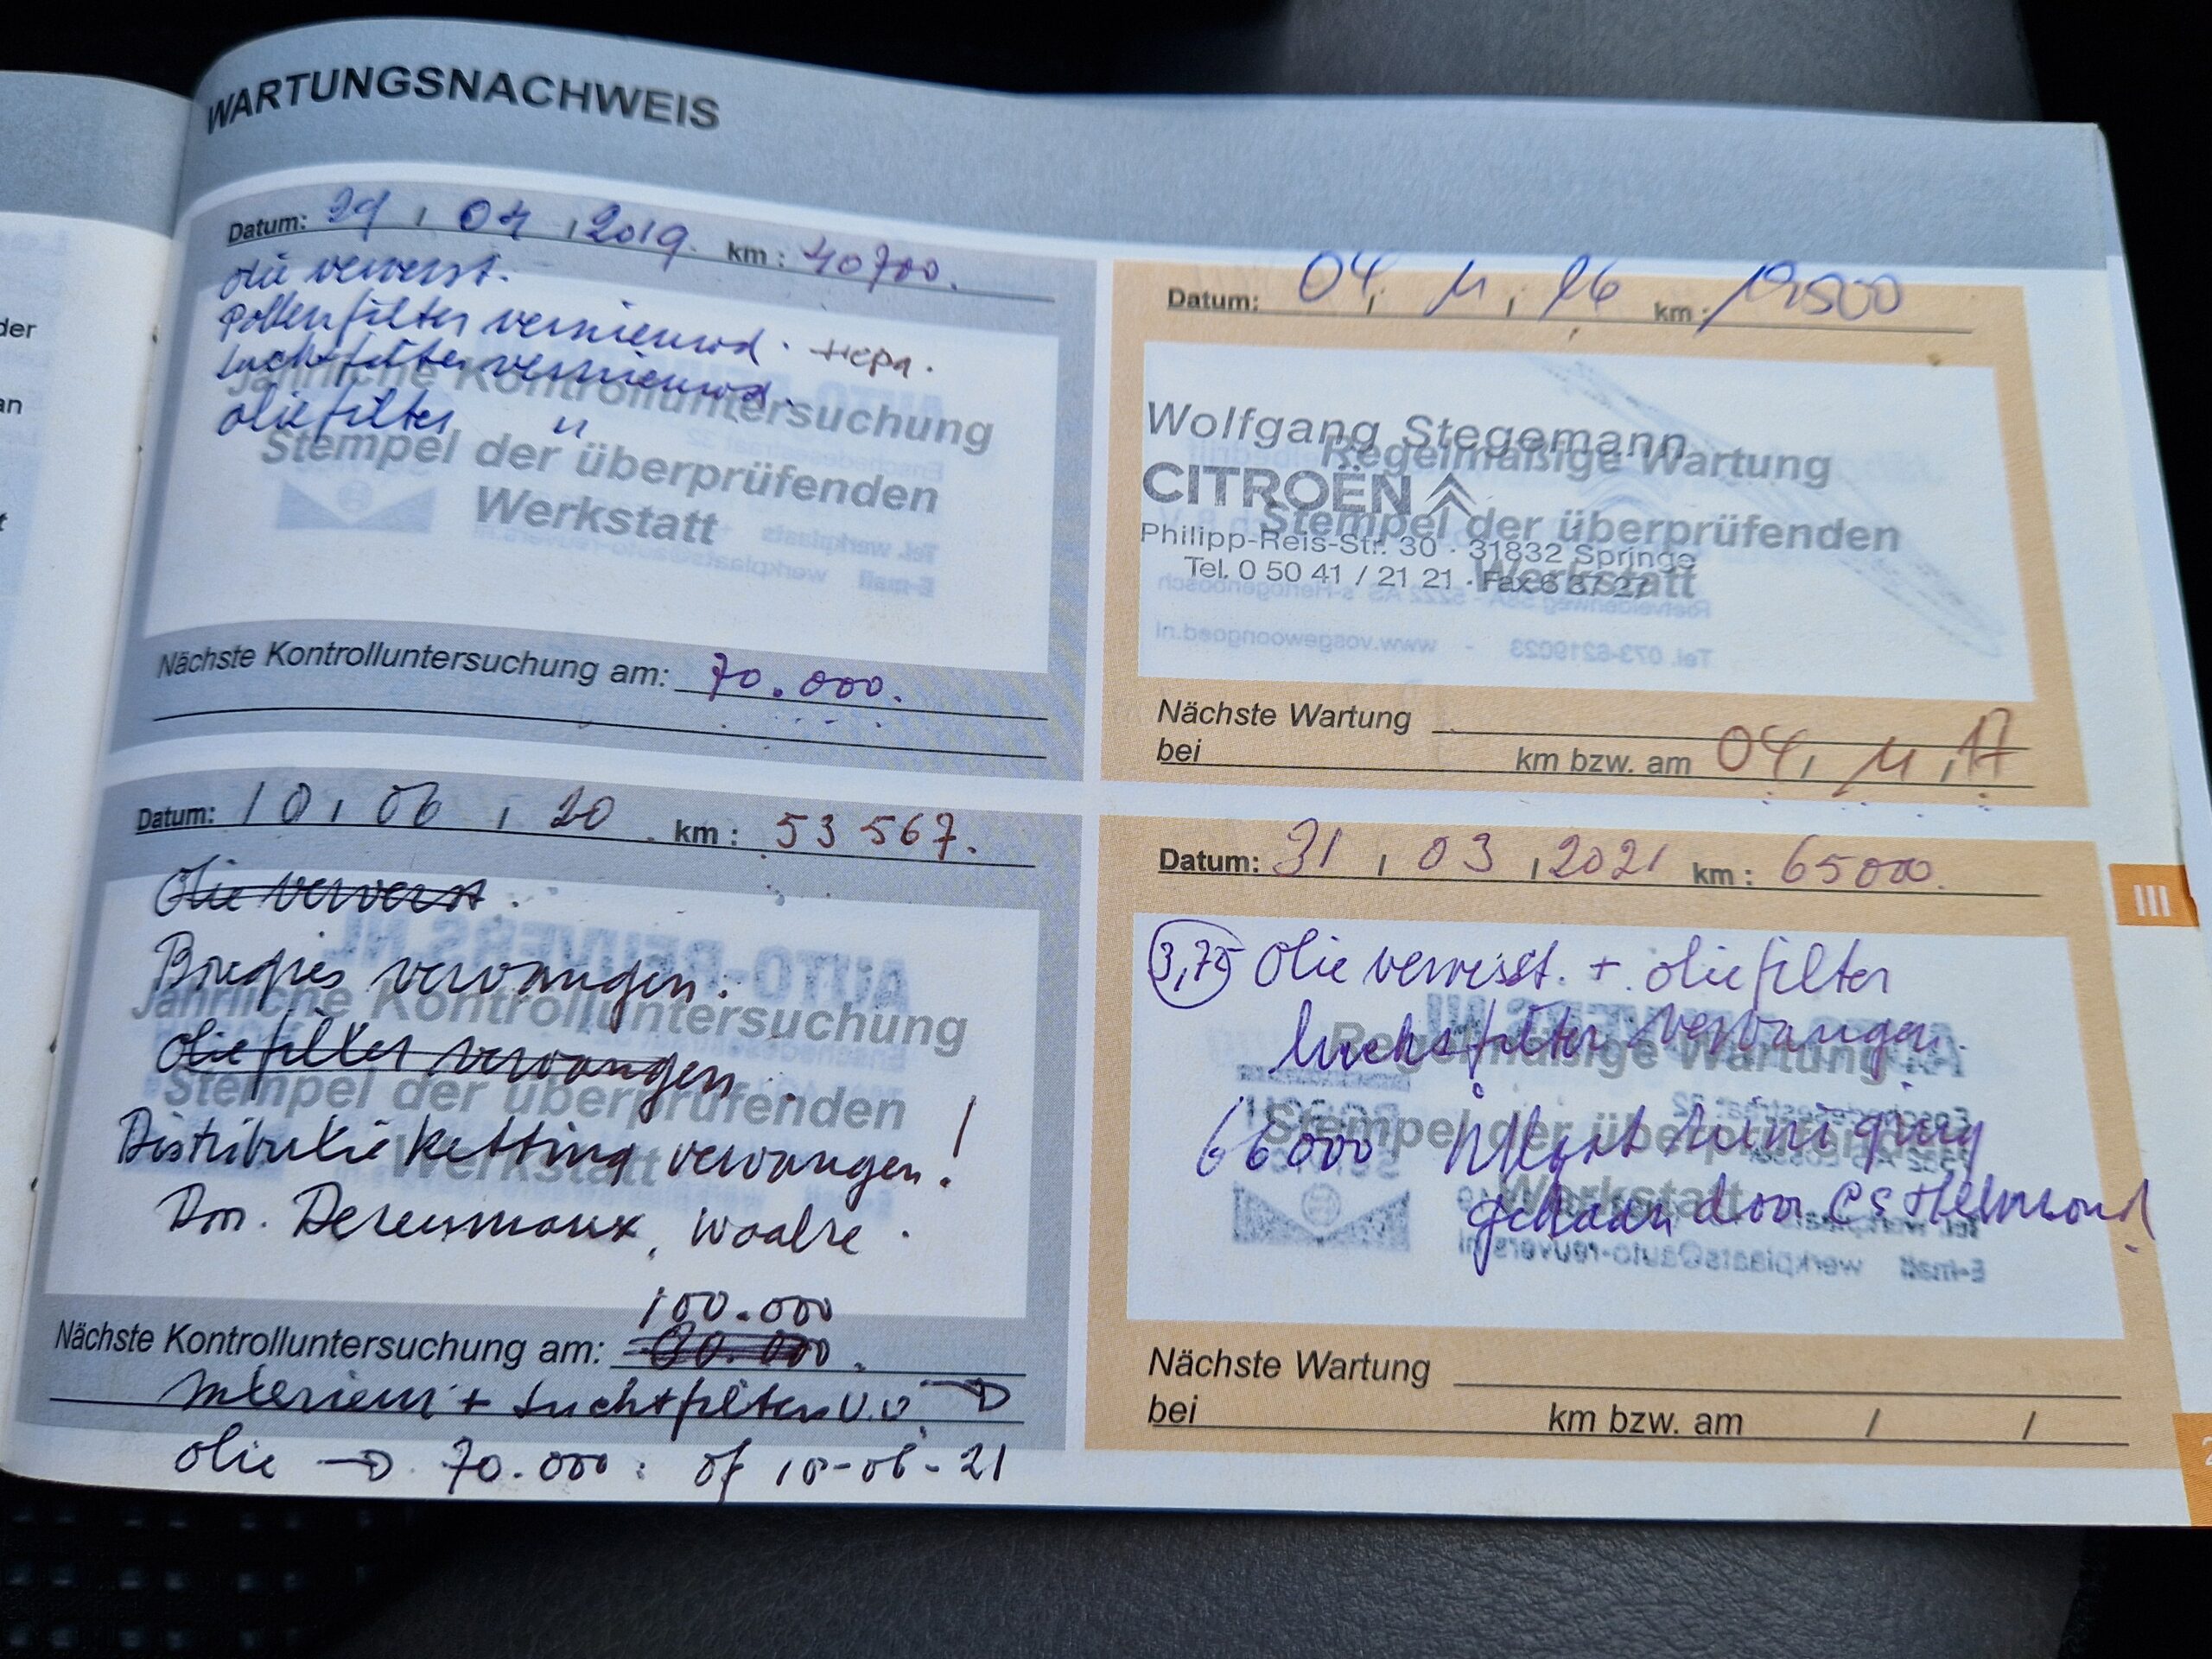 WARTUNGSNACHWEIS
Datum: 29 / 04 / 2019. km : 40700.
olie ververst.
Pollenfilter vernieuwd. Hepa.
Luchtfilter vernieuwd.
oliefilter "
Jährliche Kontrolluntersuchung
Stempel der überprüfenden
Werkstatt
Nächste Kontrolluntersuchung am: 70.000.
Datum: 04, 11, 16 km :
Wolfgang Stegemann
Regelmäßige Wartung
CITROËN
Stempel der überprüfenden
Philipp-Reis-Str. 30 · 31832 Springe
Werkstatt
Tel. 0 50 41 / 21 21 · Fax 6 37 27
Nächste Wartung
bei km bzw. am 04, 11, 17
Datum: 10, 06, 20 km : 53 567.
Olie ververst.
vervangen.
Jährliche Kontrolluntersuchung
oliefilter vervangen.
Stempel der überprüfenden
Distributie Ketting vervangen!
Werkstatt
Waalre.
100.000
Nächste Kontrolluntersuchung am:
Interieur + Luchtfilter
olie → 70.000: of 10-06-21
Datum: 31, 03, 2021 km : 65000.
3,75 Olie ververst. + oliefilter
luchtfilter vervangen.
Regelmäßige Wartung
66000
Stempel der überprüfenden
Werkstatt
gedaan door CS Helmond
Nächste Wartung
bei km bzw. am / /
III
der
an